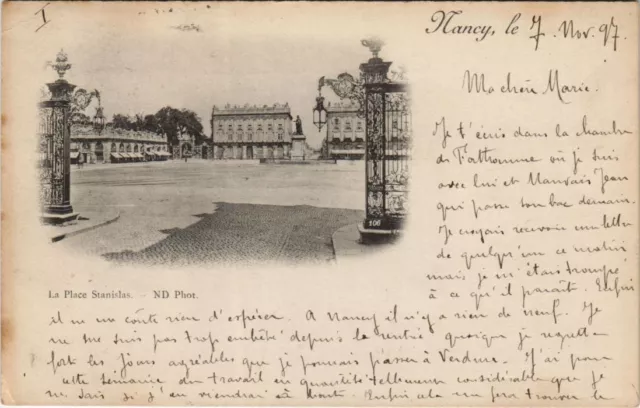 I
Nancy, le 7 Nov. 97
Ma chère Marie.
Je t'écris dans la chambre
de où je suis
avec lui et Mauvais Jean
qui passe son bac demain.
Je croyais recevoir un mot
de quelqu'un ce matin
mais je m'étais trompé
à ce qu'il paraît. Enfin
106
La Place Stanislas. — ND Phot.
il ne me coûte rien d'espérer. A Nancy il n'y a rien de neuf. Je
ne me suis pas trop embêté depuis la rentrée quoique je regrette
fort les jours agréables que je pouvais passer à Verdun. J'ai pour
cette semaine du travail en quantité tellement considérable que je
ne sais si j'en viendrai à bout. Enfin cela me fera trouver le